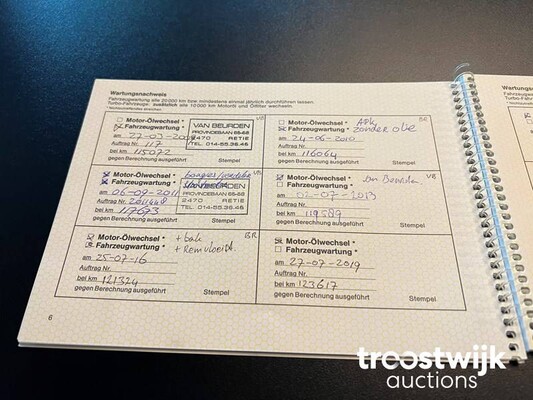 Wartungsnachweis
Fahrzeugwartung alle 20000 km bzw mindestens einmal jährlich durchführen lassen.
Turbo-Fahrzeuge: zusätzlich alle 10000 km Motoröl und Ölfilter wechseln.
Motor-Ölwechsel *
Fahrzeugwartung *
am 22-03-20
Auftrag Nr. 117
bei km 115022
gegen Berechnung ausgeführt
Stempel
VAN BEURDEN
PROVINCIEBAAN 65-68
2470 RETIE
TEL. 014-55.36.45
VB
Motor-Ölwechsel * APK
Fahrzeugwartung * zonder olie
BR
am 24-06-2010
Auftrag Nr.
bei km 116064
gegen Berechnung ausgeführt
Stempel
Motor-Ölwechsel *
Fahrzeugwartung *
am 06-09-2011
Auftrag Nr.
bei km 117673
gegen Berechnung ausgeführt
Stempel
BEURDEN
PROVINCIEBAAN 65-68
2470 RETIE
TEL. 014-55.36.45
VB
Motor-Ölwechsel *
Fahrzeugwartung *
VB
am 02-07-2013
Auftrag Nr.
bei km 119589
gegen Berechnung ausgeführt
Stempel
Motor-Ölwechsel * + bak
Fahrzeugwartung * + Remvloeist.
BR
am 25-07-16
Auftrag Nr.
bei km 121324
gegen Berechnung ausgeführt
Stempel
Motor-Ölwechsel *
Fahrzeugwartung *
am 27-07-2019
Auftrag Nr.
bei km 123617
gegen Berechnung ausgeführt
Stempel
6
troostwijk
auctions